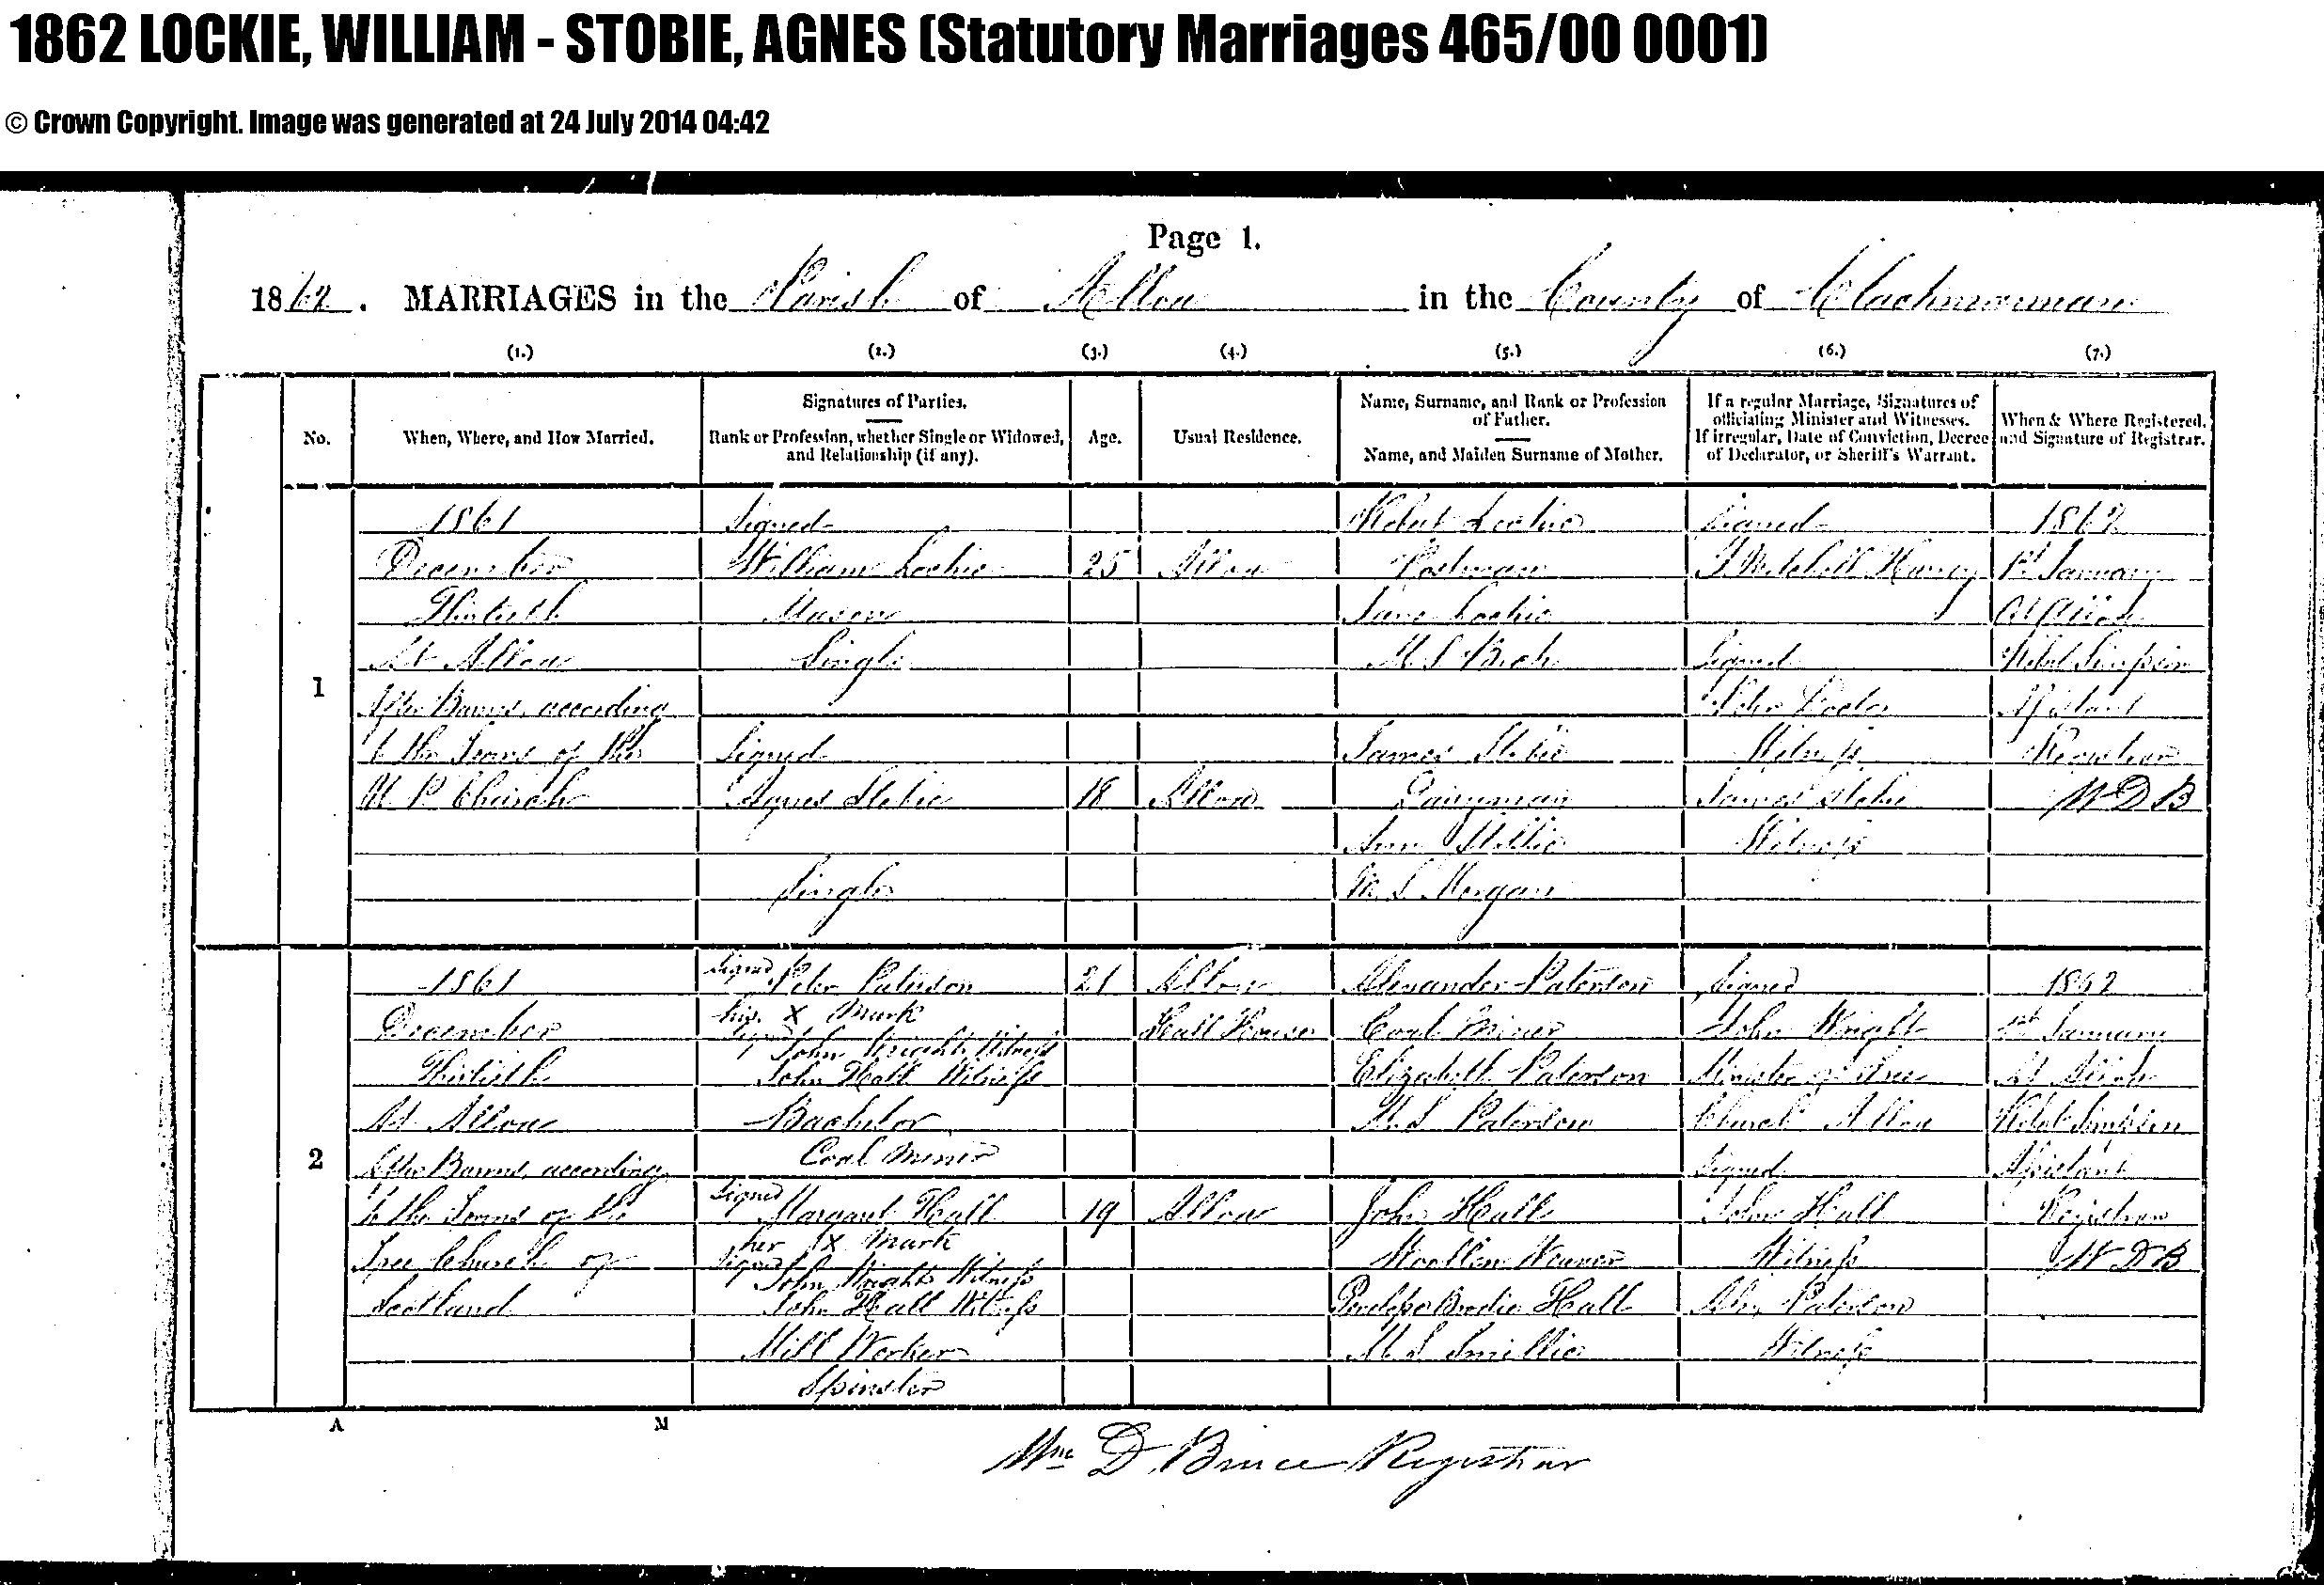 1862 LOCKIE, WILLIAM - STOBIE, AGNES (Statutory Marriages 465/00 0001)
© Crown Copyright. Image was generated at 24 July 2014 04:42
Page 1.
1862. MARRIAGES in the Parish of Alloa in the County of Clackmannan
(1.) (2.) (3.) (4.) (5.) (6.) (7.)
No.
When, Where, and How Married.
Signatures of Parties.
Rank or Profession, whether Single or Widowed,
and Relationship (if any).
Age.
Usual Residence.
Name, Surname, and Rank or Profession
of Father.
Name, and Maiden Surname of Mother.
If a regular Marriage, Signatures of
officiating Minister and Witnesses.
If irregular, Date of Conviction, Decree
of Declarator, or Sheriff's Warrant.
When & Where Registered,
and Signature of Registrar.
1
1861
December
Thirtieth
At Alloa
After Banns, according
to the Forms of the
U. P. Church
Signed
William Lockie
Mason
Single
Signed
Agnes Stobie
Single
25
18
Alloa
Alloa
Robert Lockie
Postman
Jane Lockie
M. S.
James Stobie
Dairyman
Ann Stobie
M. S. Morgan
Signed
Mitchell Harvey
Signed
Witness
James Stobie
Witness
1862
1st January
At Alloa
Robert Simpson
Assistant
Registrar
W D B
2
1861
December
Thirtieth
At Alloa
After Banns, according
to the Forms of the
Free Church of
Scotland
Signed Peter Paterson
his X Mark
Signed John Wright Witness
John Hall Witness
Bachelor
Coal Miner
Signed Margaret Hall
her X Mark
Signed John Wright Witness
John Hall Witness
Mill Worker
Spinster
21
19
Alloa
Hall House
Alloa
Alexander Paterson
Coal Miner
Elizabeth Paterson
M. S. Paterson
John Hall
Woollen Weaver
Penelope Brodie Hall
M. S. Smillie
Signed
John Wright
Minister of Free
Church Alloa
Signed
John Hall
Witness
Alex Paterson
Witness
1862
1st January
At Alloa
Robert Simpson
Assistant
Registrar
W D B
A M
Wm D. Bruce Registrar